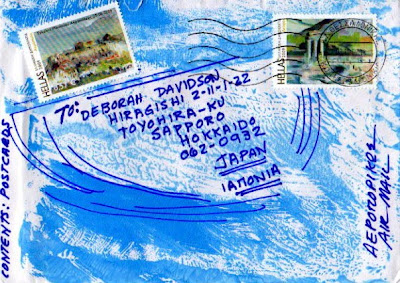 HELLAS
HELLAS
TO: DEBORAH DAVIDSON
HIRAGISHI 2-11-1-22
TOYOHIRA-KU
SAPPORO
HOKKAIDO
062-0932
JAPAN
ΙΑΠΩΝΙΑ
CONTENTS: POSTCARDS
ΑΕΡΟΠΟΡΙΚΩΣ
AIR MAIL